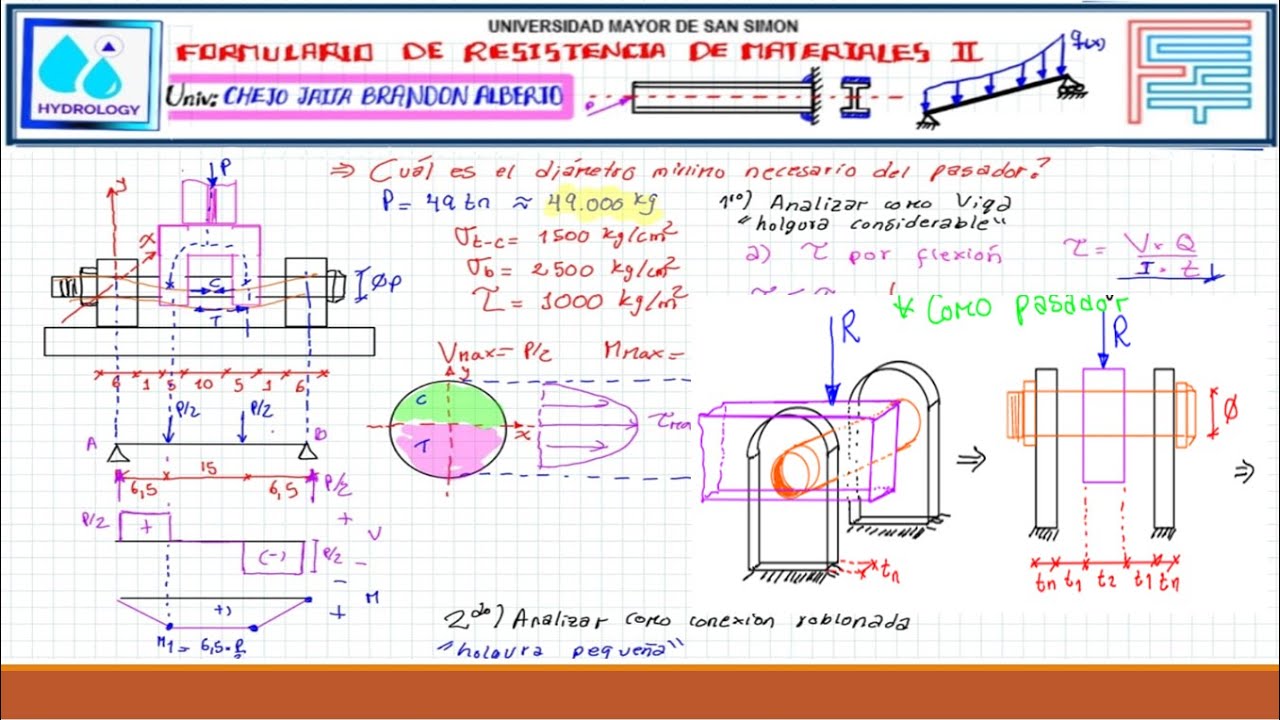 UNIVERSIDAD MAYOR DE SAN SIMON
FORMULARIO DE RESISTENCIA DE MATERIALES II
HYDROLOGY
Univ: CHEJO JAITA BRANDON ALBERTO
P
q(x)
⇒ Cuál es el diámetro mínimo necesario del pasador?
P = 49 tn ≈ 49.000 kg
σt-c = 1500 kg/cm²
σb = 2500 kg/cm²
τ = 1000 kg/cm²
1ro) Analizar como Viga
"holgura considerable"
a) τ por flexión
τ = V * Q / I * t
P
y
x
C
T
ØP
6 1 5 10 5 1 6
P/2 P/2
A B
6,5 15 6,5 P/2
P/2 + V
(-) P/2
+ -
+) M
+
M1 = 6,5 * P/2
Vmax = P/2 Mmax =
y
C
T
x
* Como pasador
R
tn
⇒
R
Ø
⇒
tn t1 t2 t1 tn
2do) Analizar como conexion roblonada
"holgura pequeña"